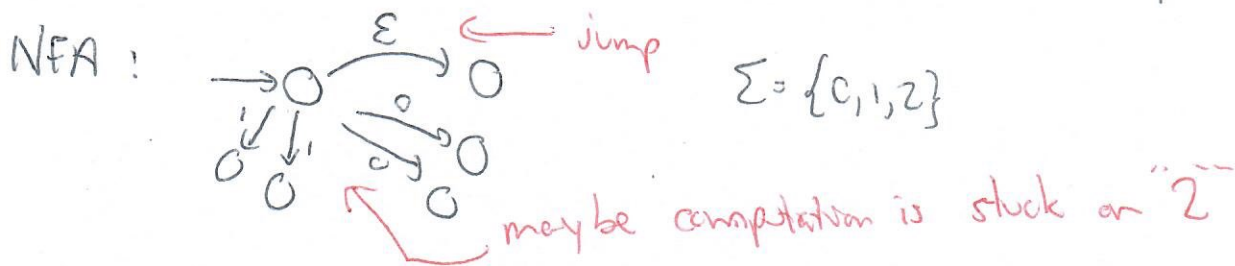 NFA :
ε
jump
Σ = {0, 1, 2}
0
0
1
1
maybe computation is stuck on "2"